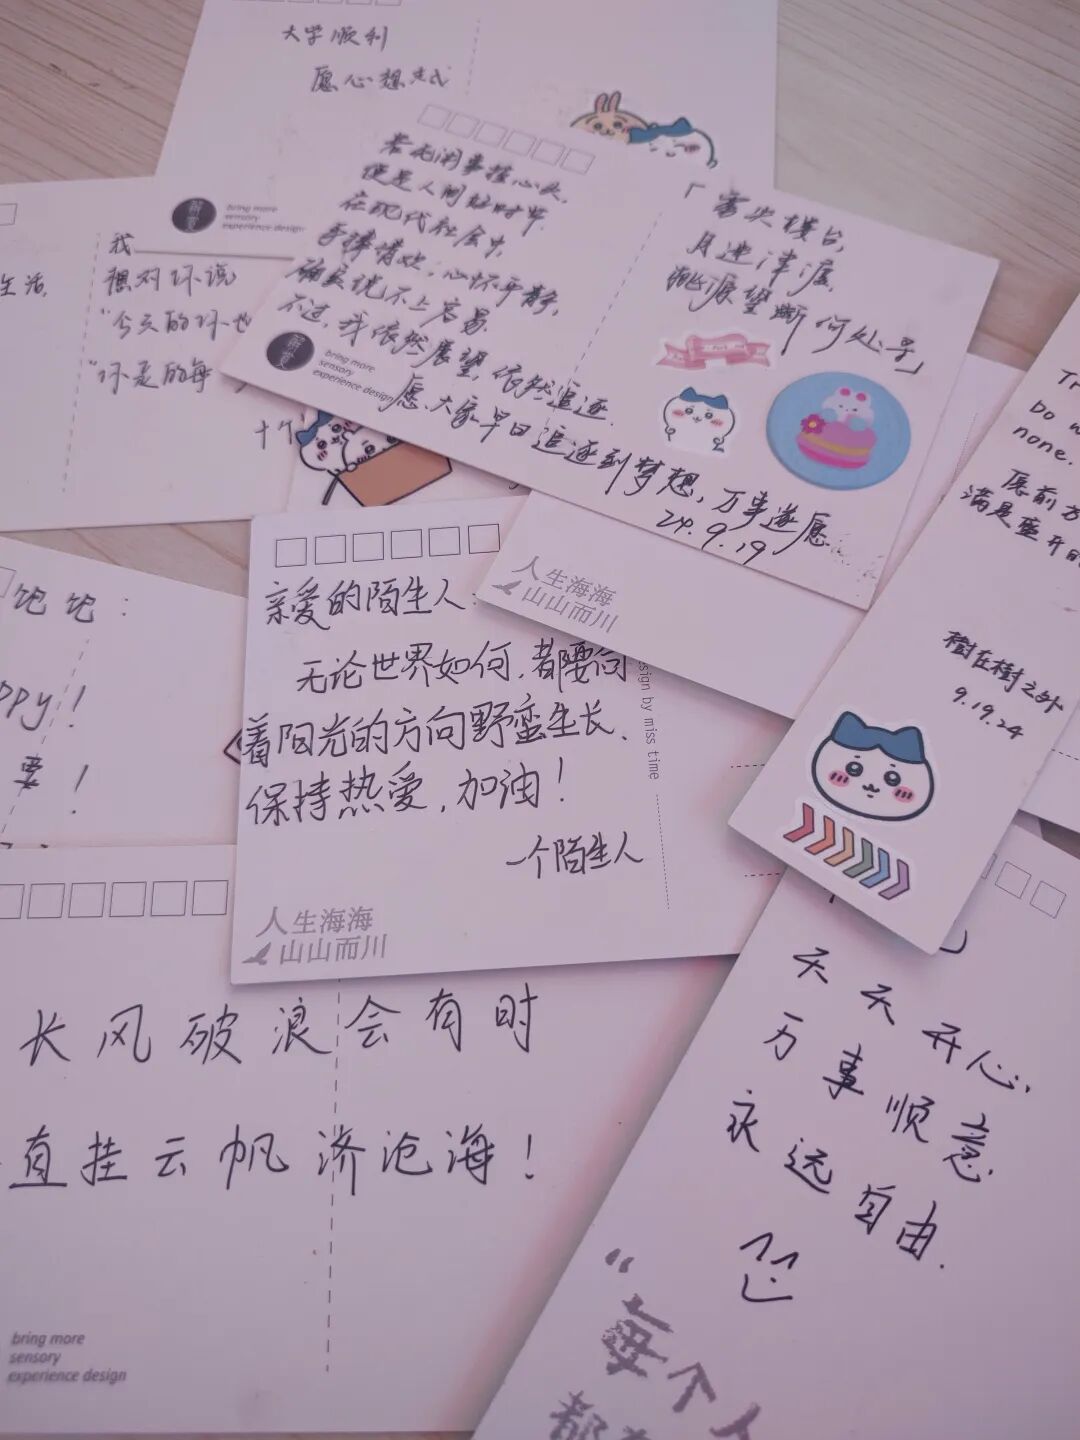 大学顺利
愿心想
bring more
sensory
experience design
若无闲事挂心头,
便是人间好时节.
在现代社会中,
事情
确实说不上容易.
不过,我依然展望,依然追逐.
愿大家早日追逐到梦想,万事遂愿
24.9.19
bring more
sensory
experience design
「雾失楼台,
月迷津渡.
桃源望断何处寻」
生活.
我
想对你说
"今天的你也
十个
none.
愿前方
满是盛开的
樹在樹之外
9.19.24
饱饱:
ppy!
要!
亲爱的陌生人:
无论世界如何,都要向
着阳光的方向野蛮生长.
保持热爱,加油!
一个陌生人
人生海海
山山而川
design by miss time
人生海海
山山而川
长风破浪会有时
直挂云帆济沧海!
bring more
sensory
experience design
天天开心
万事顺意
永远自由.
"每个人
都